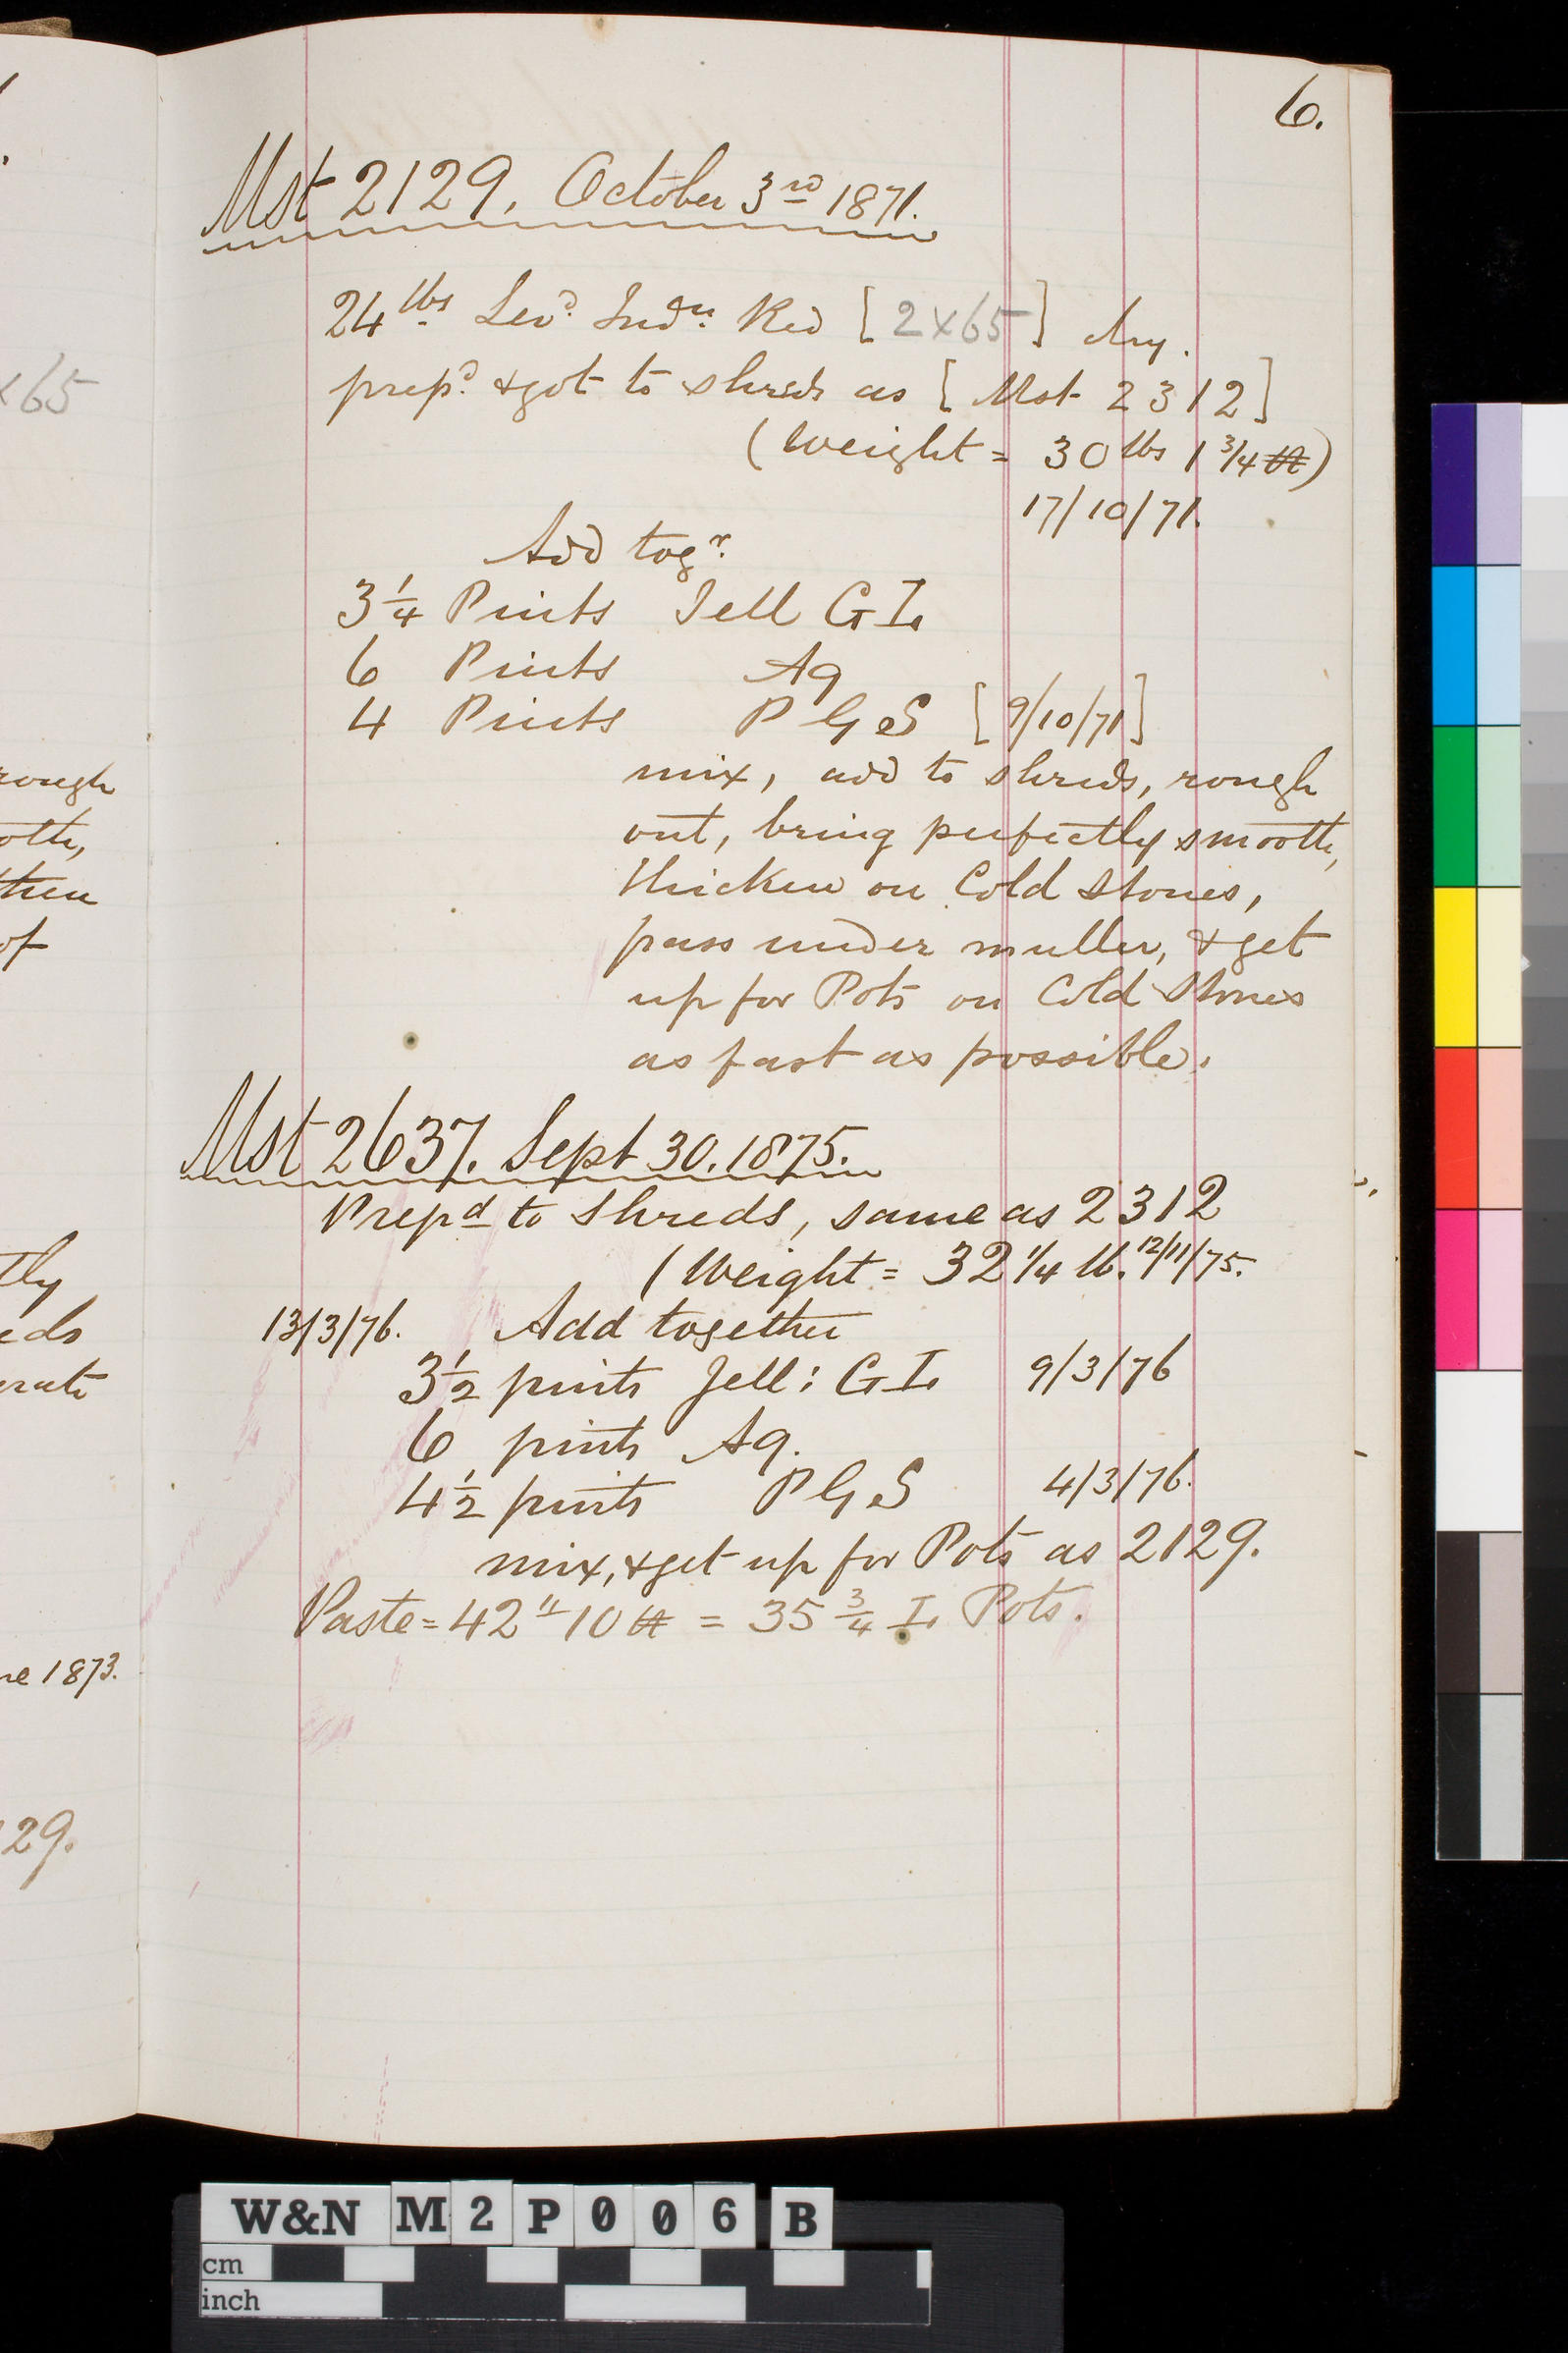 6.
Mst 2129, October 3rd 1871.
24 lbs Levd. Indn. Red [2x65] dry.
prepd. & got to shreds as [Mst 2312]
(Weight = 30 lbs 1 3/4 ℔)
17/10/71.
Add togr.
3 1/4 Pints Jell G I.
6 Pints Aq
4 Pints P G S [9/10/71]
mix, add to shreds, rough
out, bring perfectly smooth,
thicken on Cold Stones,
pass under muller, & get
up for Pots on Cold Stones
as fast as possible.
Mst 2637. Sept 30. 1875.
Prepd to shreds, same as 2312
(Weight = 32 1/4 lb. 12/11/75.
13/3/76. Add together
3 1/2 pints Jell: G I. 9/3/76
6 pints Aq.
4 1/2 pints P G S 4/3/76.
mix, & get up for Pots as 2129.
Paste = 42 10 ℔ = 35 3/4 I. Pots.
x65
rough
oth,
then
of
tly
eds
rate
ne 1873.
29.
W&N M2P006 B
cm
inch